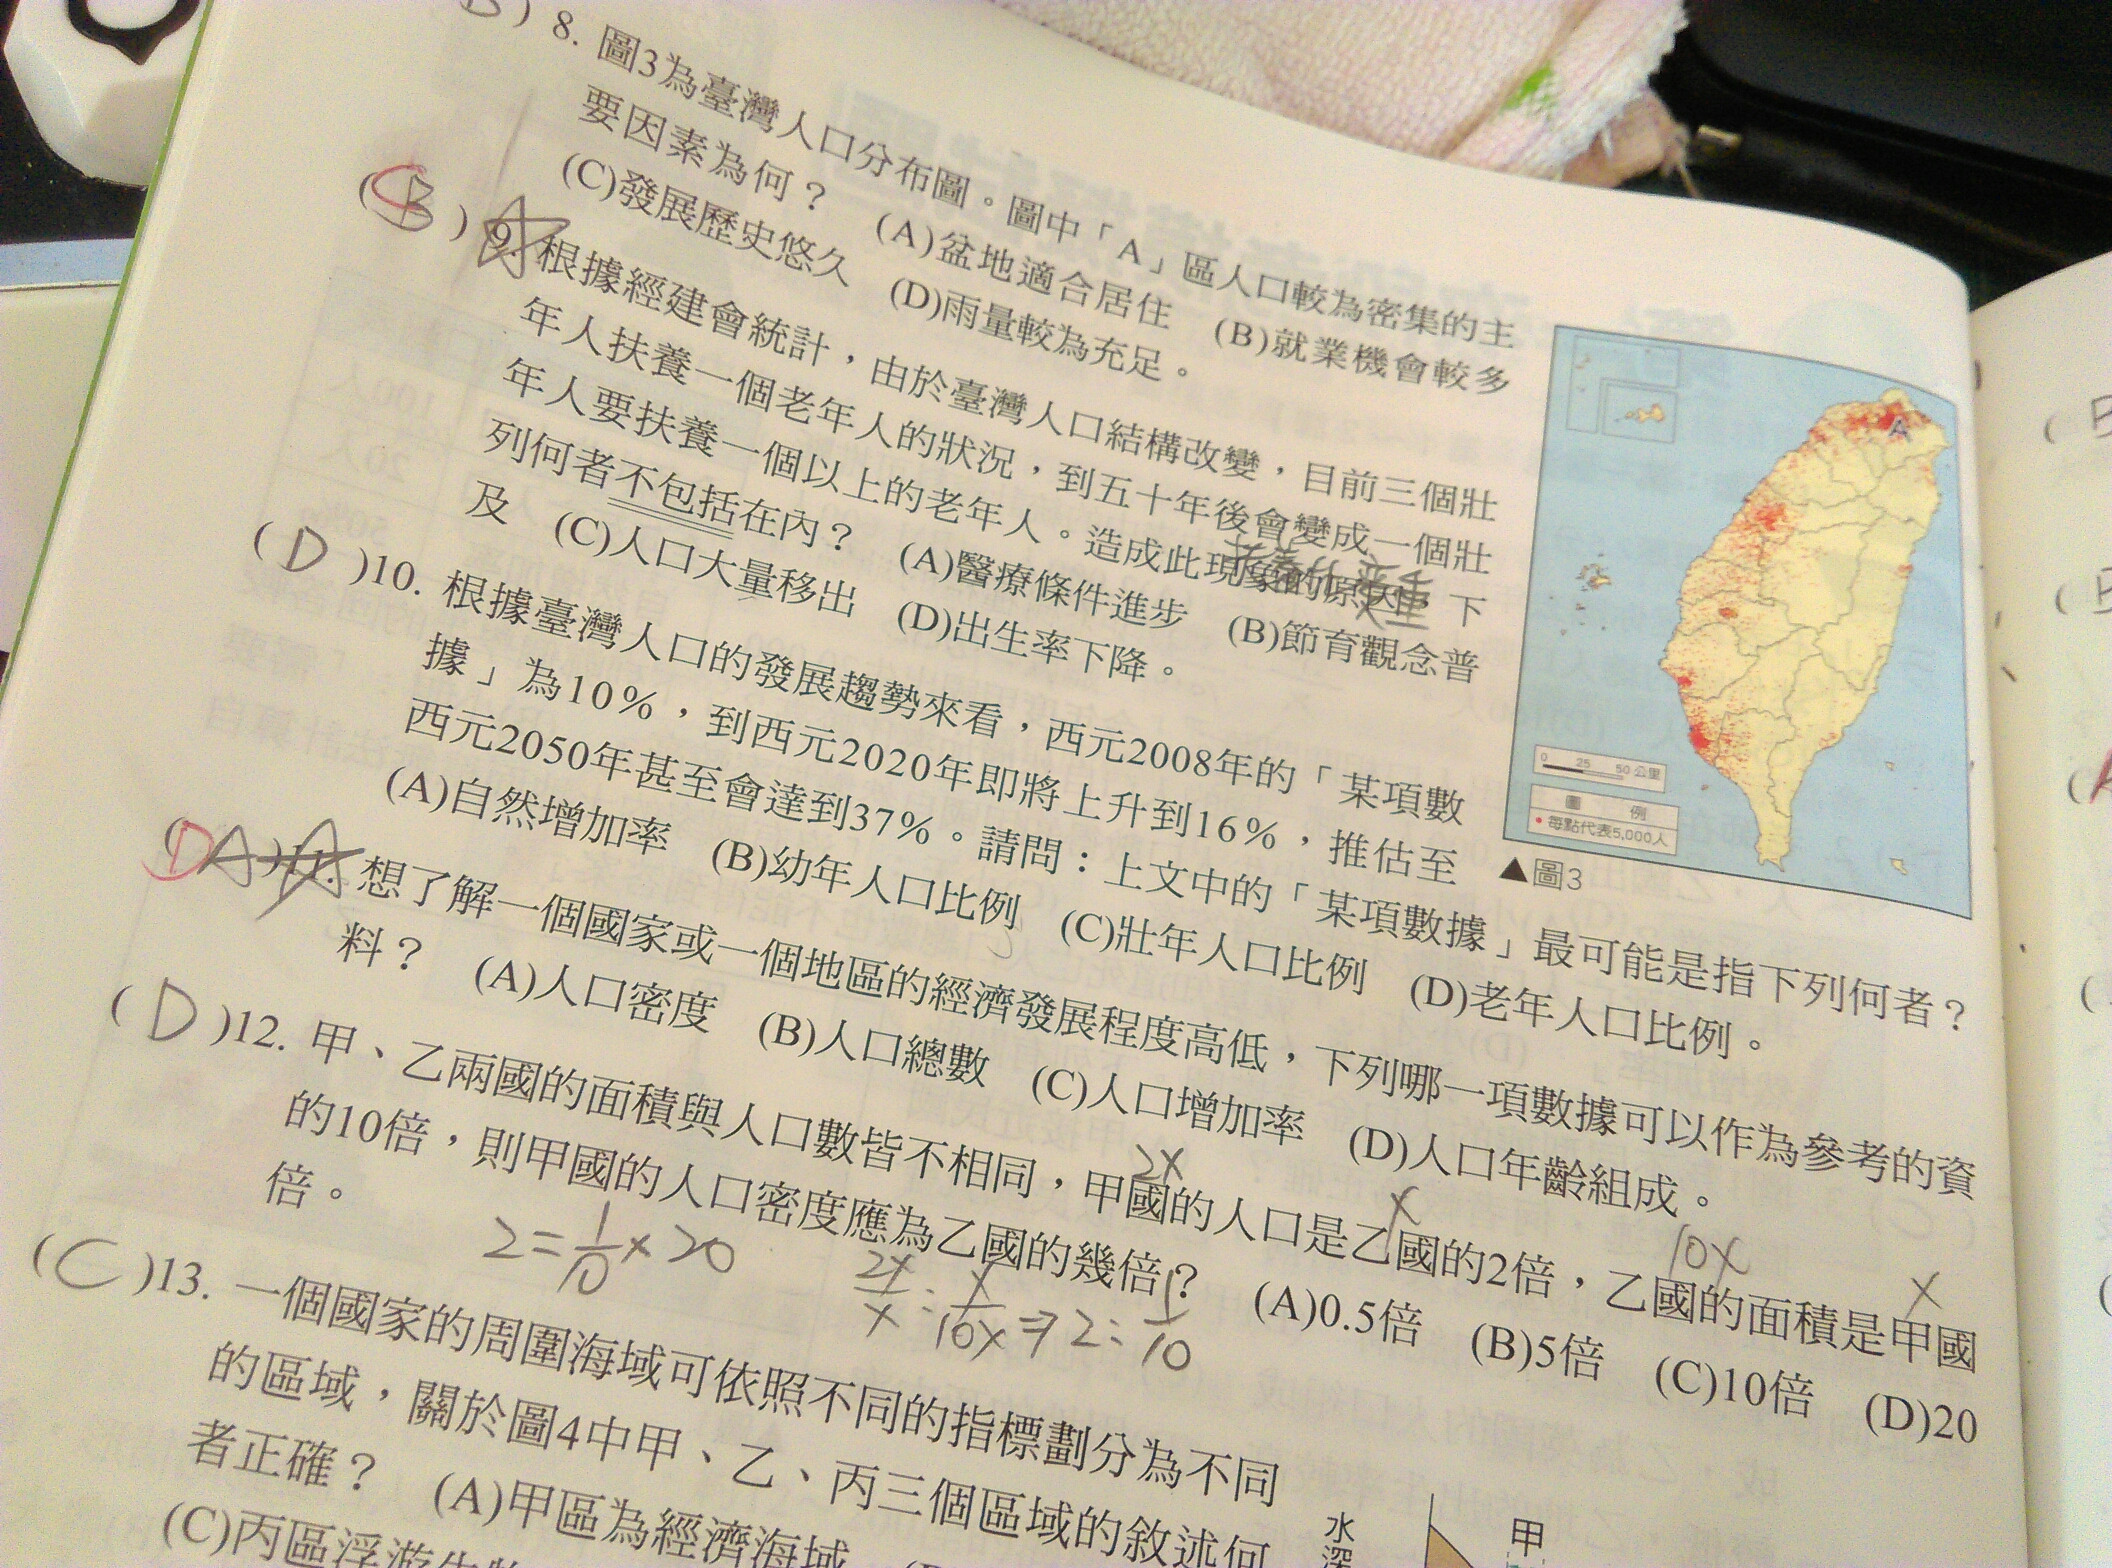 B ) 8. 圖3為臺灣人口分布圖。圖中「A」區人口較為密集的主
要因素為何？ (A)盆地適合居住 (B)就業機會較多
(C)發展歷史悠久 (D)雨量較為充足。
( B C ) 9. 根據經建會統計，由於臺灣人口結構改變，目前三個壯
年人扶養一個老年人的狀況，到五十年後會變成一個壯
年人要扶養一個以上的老年人。造成此現象的原因，下
列何者不包括在內？ (A)醫療條件進步 (B)節育觀念普
及 (C)人口大量移出 (D)出生率下降。
( D )10. 根據臺灣人口的發展趨勢來看，西元2008年的「某項數
據」為10%，到西元2020年即將上升到16%，推估至
西元2050年甚至會達到37%。請問：上文中的「某項數據」最可能是指下列何者？
(A)自然增加率 (B)幼年人口比例 (C)壯年人口比例 (D)老年人口比例。
( D A )11. 想了解一個國家或一個地區的經濟發展程度高低，下列哪一項數據可以作為參考的資
料？ (A)人口密度 (B)人口總數 (C)人口增加率 (D)人口年齡組成。
( D )12. 甲、乙兩國的面積與人口數皆不相同，甲國的人口是乙國的2倍，乙國的面積是甲國
2x x 10x x
的10倍，則甲國的人口密度應為乙國的幾倍？ (A)0.5倍 (B)5倍 (C)10倍 (D)20
倍。
2=1/10×20 2x/x:x/10x⇒2:1/10
( C )13. 一個國家的周圍海域可依照不同的指標劃分為不同
的區域，關於圖4中甲、乙、丙三個區域的敘述何
者正確？ (A)甲區為經濟海域
(C)丙區浮游生物
A
0 25 50 公里
圖 例
• 每點代表5,000人
▲圖3
水深
甲